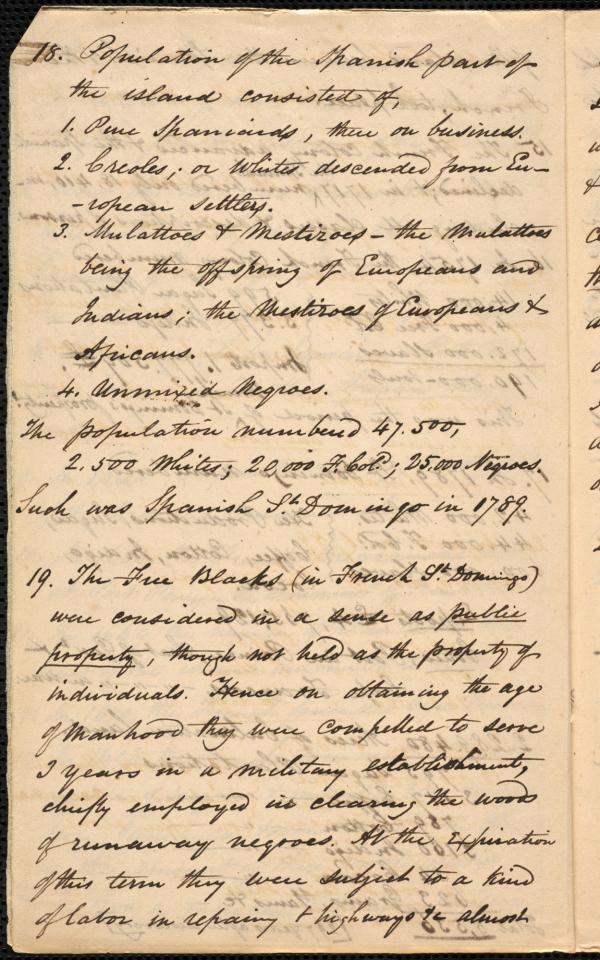 18. Population of the Spanish part of
the island consisted of,
1. Pure Spaniards, there on business.
2. Creoles; or Whites descended from Eu-
-ropean settlers.
3. Mulattoes & Mestizoes - the Mulattoes
being the offspring of Europeans and
Indians; the Mestizoes of Europeans &
Africans.
4. Unmixed Negroes.
The population numbered 47.500,
2.500 Whites; 20,000 F. Cold; 25.000 Negroes.
Such was Spanish St. Domingo in 1789.
19. The Free Blacks (in French St. Domingo)
were considered in a sense as public
property, though not held as the property of
individuals. Hence on obtaining the age
of manhood they were compelled to serve
3 years in a military establishment,
chiefly employed in clearing the woods
of runaway negroes. At the Expiration
of this term they were subject to a kind
of labor in repairing & highways &c almost